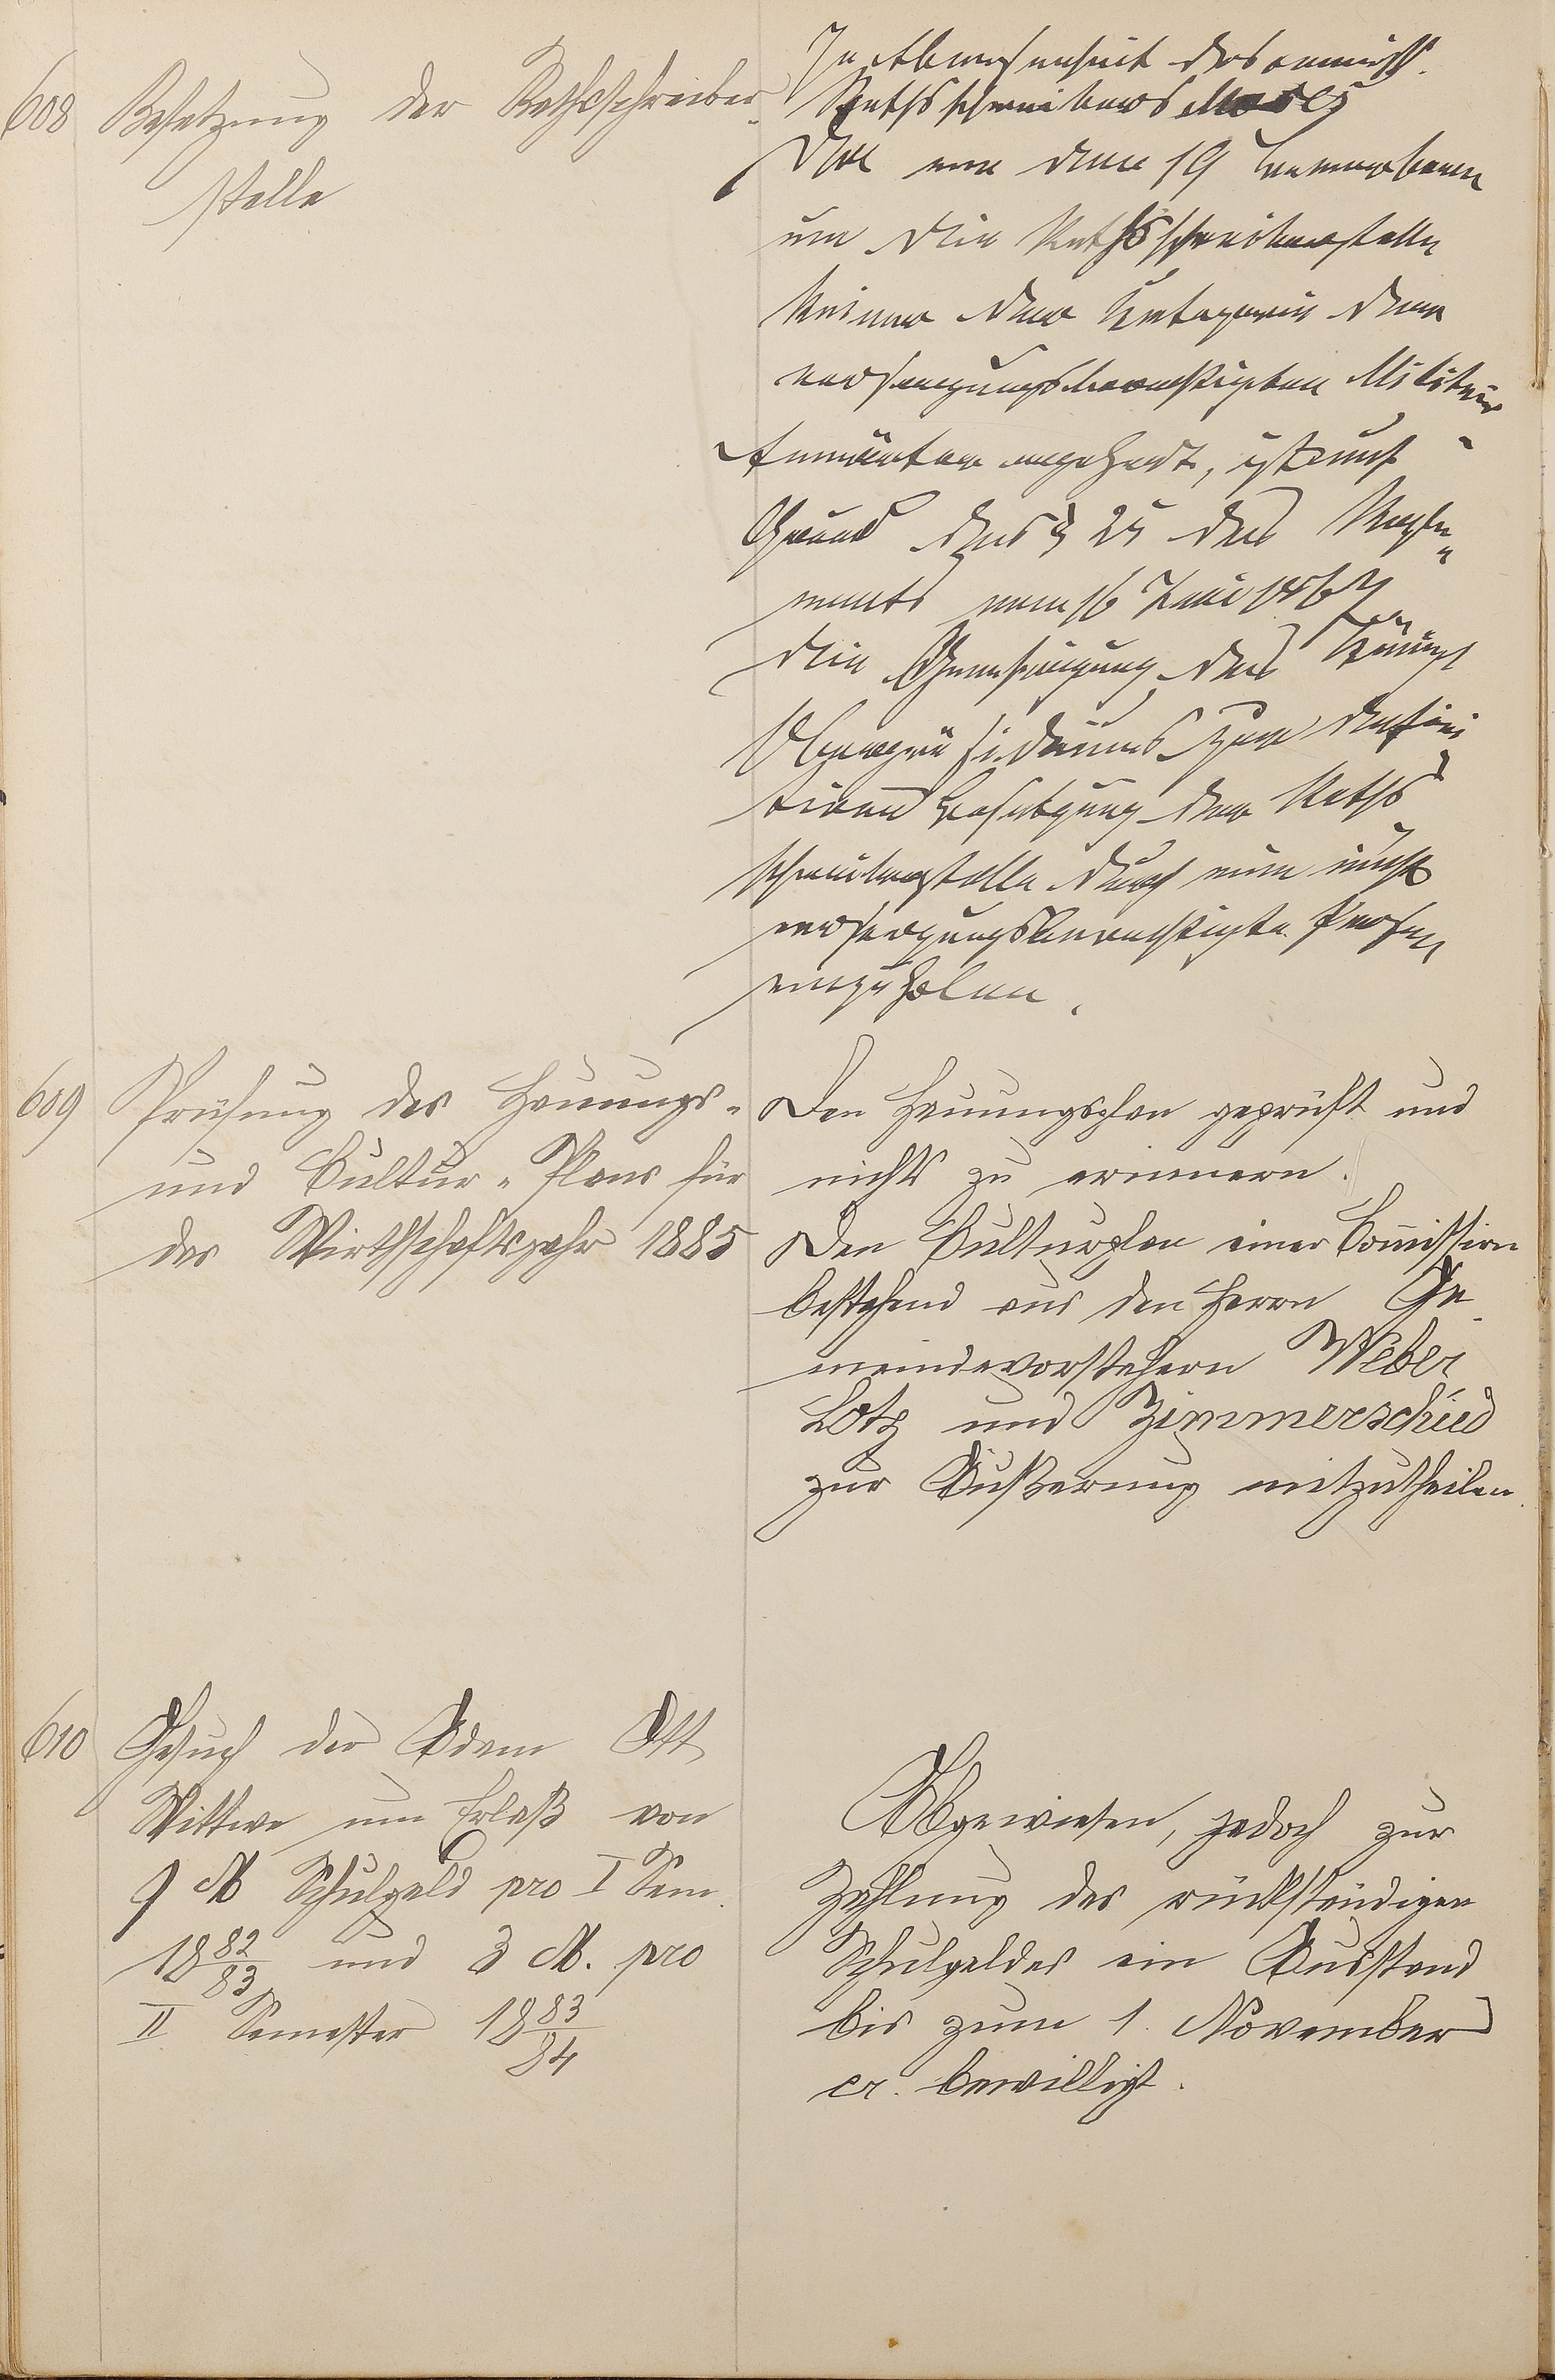 608 Besetzung der Rathsschreiber-
stelle
In Abwesenheit des commiss.
Rathsschreibers Moses
Da von den 19 Bewerbern
um die Rathsschreiberstelle
keiner der Kategorie der
versorgungsberechtigten Militär
Anwärter angehört, ist auf
Grund des § 25 des Regle-
ments vom 16 Juni 1867
die Genehmigung des Königl
Oberpräsidiums zur defini
tiven Besetzung der Raths
schreiberstelle durch eine nicht
versorgungsberechtigte Person
einzuholen.
609 Prüfung des Hauungs-
und Cultur-Plans für
das Wirthschaftsjahr 1885
Den Hauungsplan geprüft und
nichts zu erinnern.
Den Culturplan einer Commission
bestehend aus den Herrn Ge-
meindevorstehern Weber
Lotz und Zimmerschied
zur Äußerung mitzutheilen.
610 Gesuch der Adam Ott
Wittwe um Erlaß von
9 M Schulgeld pro I Sem.
1882/83 und 3 M. pro
II Semester 1883/84
Abgewiesen, jedoch zur
Zahlung des rückständigen
Schulgeldes ein Ausstand
bis zum 1. November
cr. bewilligt.